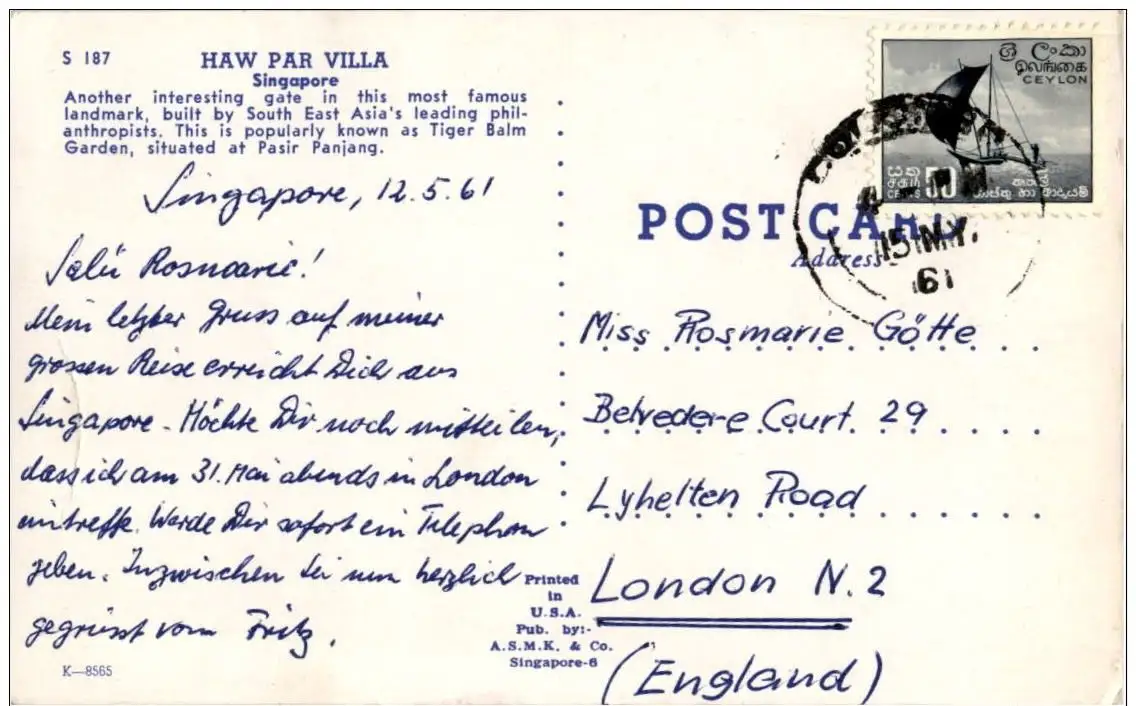 S 187
HAW PAR VILLA
Singapore
Another interesting gate in this most famous
landmark, built by South East Asia's leading phil-
anthropists. This is popularly known as Tiger Balm
Garden, situated at Pasir Panjang.
Singapore, 12.5.61
Salü Rosmarie!
Mein letzter Gruss auf meiner
grossen Reise erreicht Dich aus
Singapore. Möchte Dir noch mitteilen,
dass ich am 31. Mai abends in London
eintreffe. Werde Dir sofort ein Telephon
geben. Inzwischen sei nun herzlich
gegrüsst vom Fritz.
K—8565
Printed
in
U.S.A.
Pub. by:-
A.S.M.K. & Co.
Singapore-6
ශ්‍රී ලංකා
இலங்கை
CEYLON
සත
சதம்
CENTS 50
15 MY.
61
POST CARD
Address
Miss Rosmarie Götte
Belvedere Court 29
Lyhelten Road
London N.2
(England)